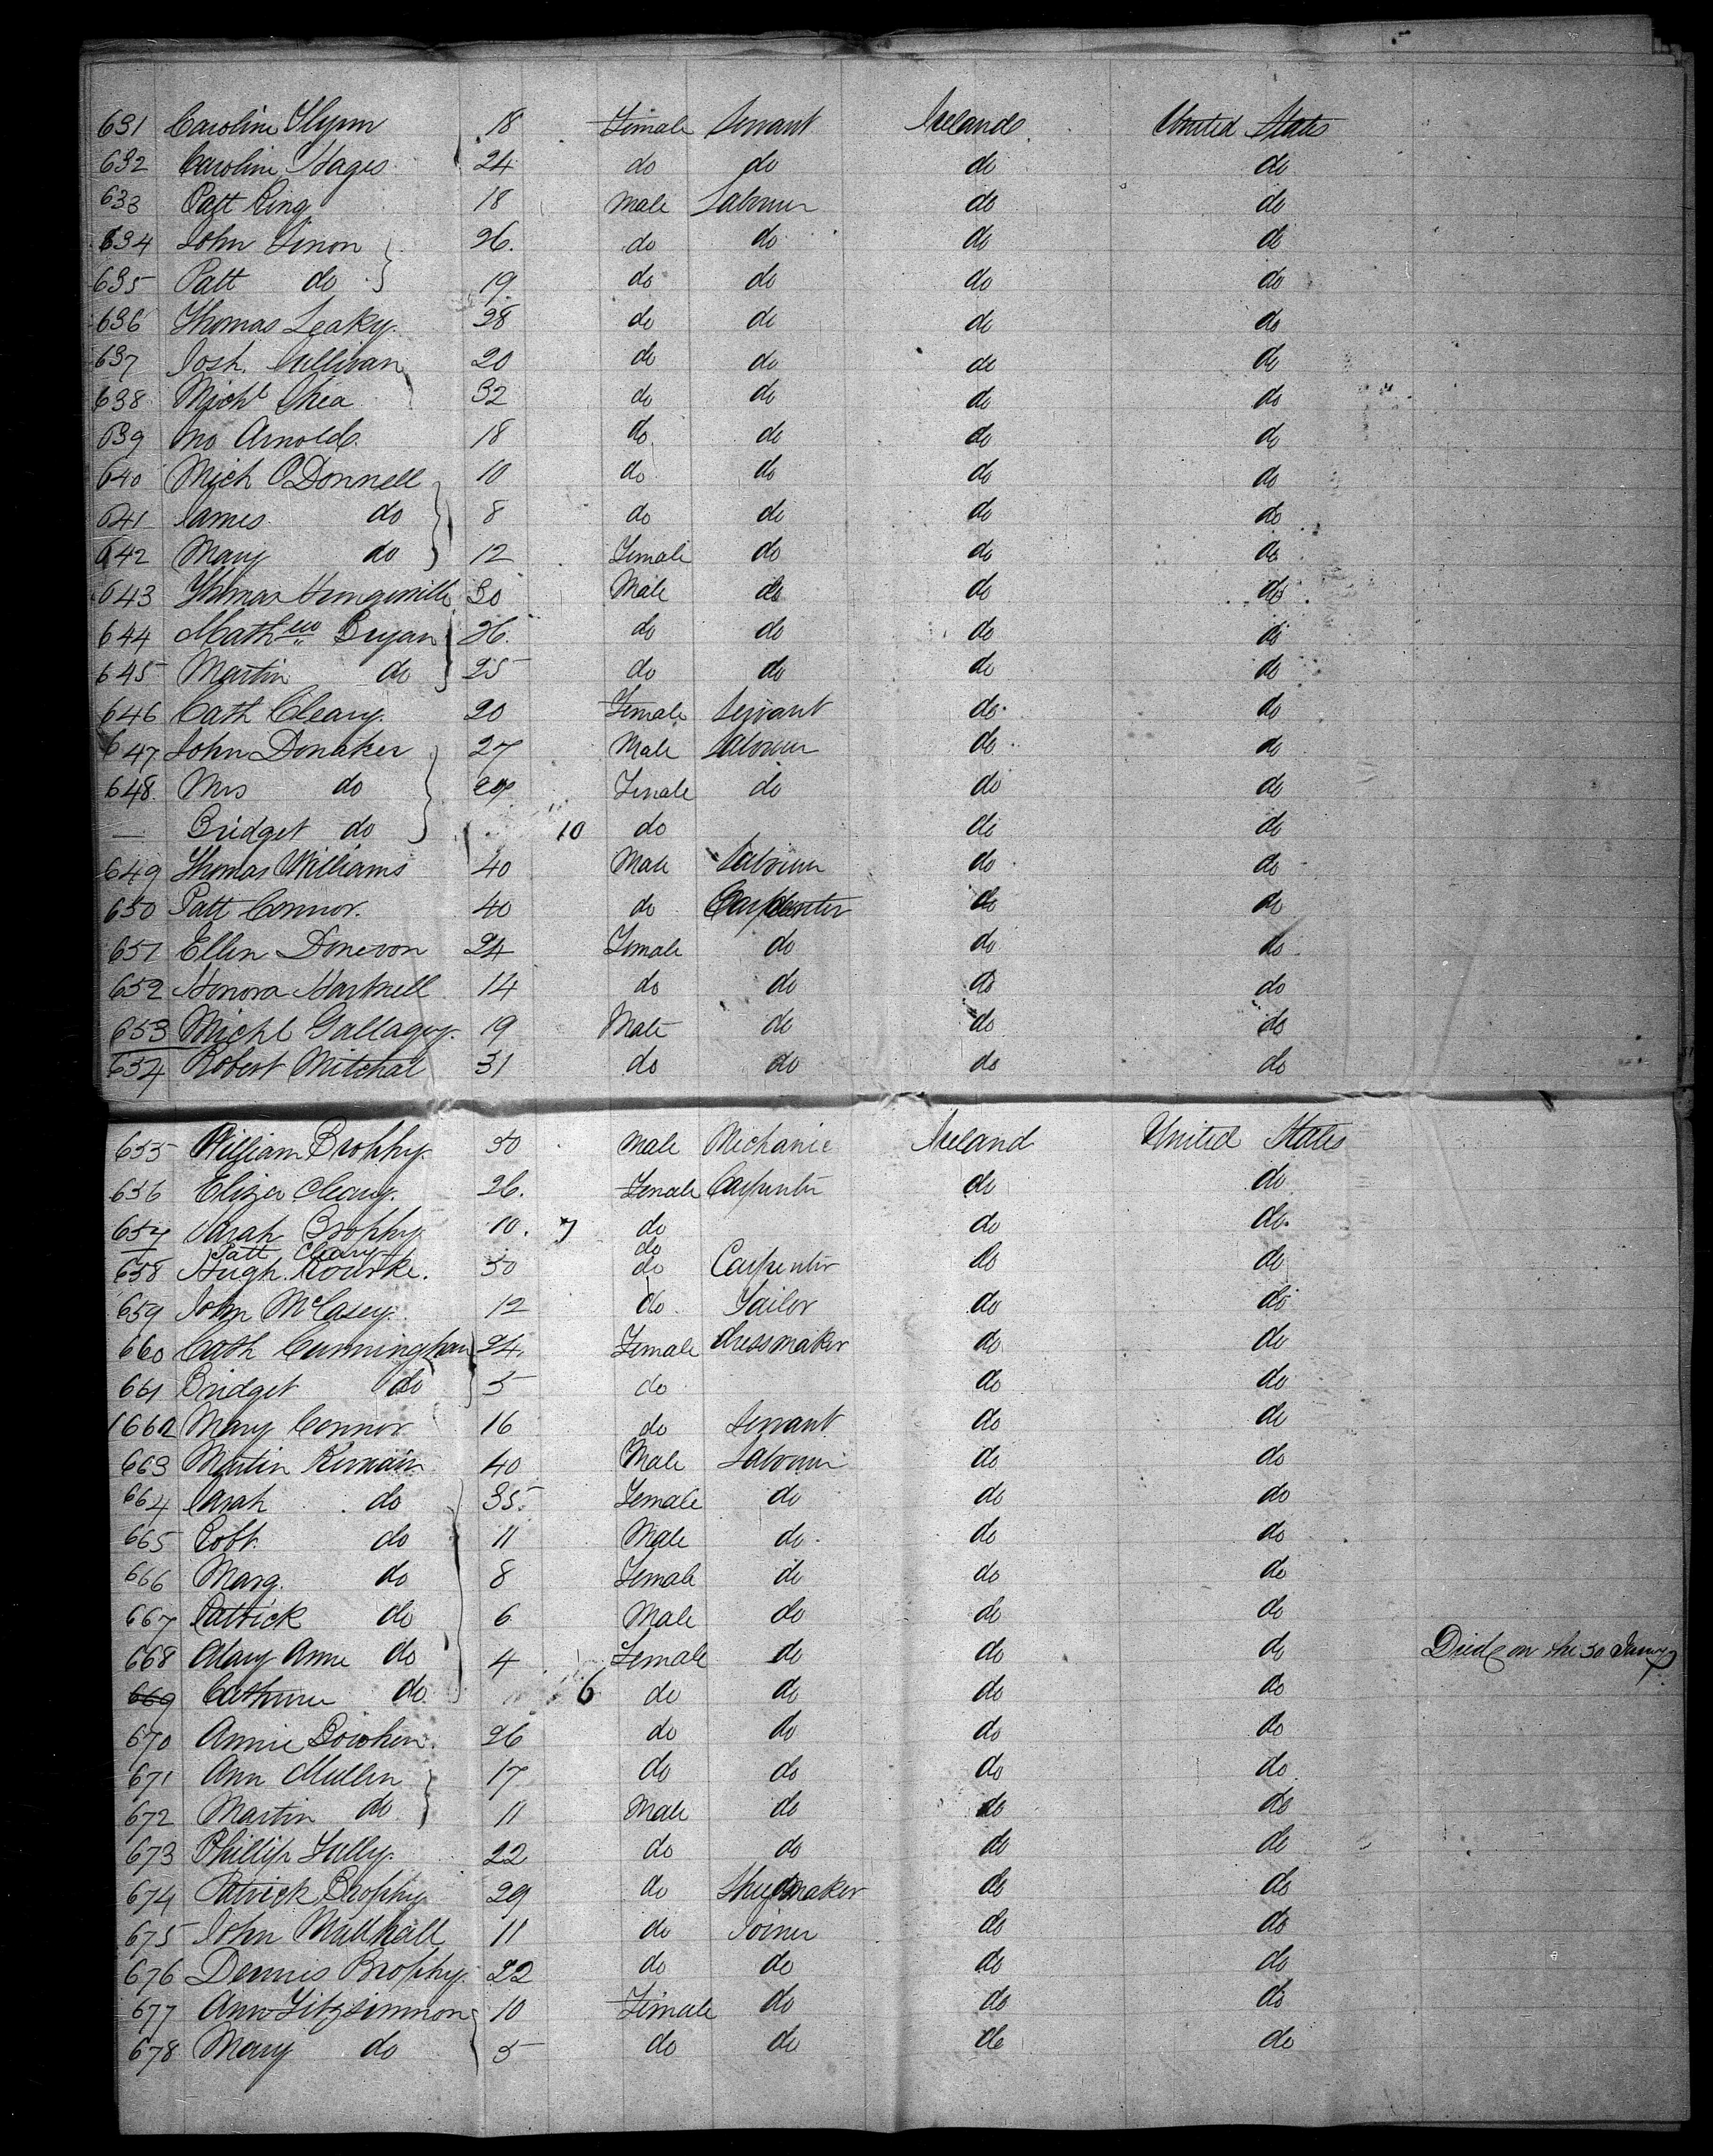 631 Caroline Flynn 18 Female Servant Ireland United States
632 Caroline Hages 24 do do do do
633 Patt King 18 Male Labourer do do
634 John Sinon 26 do do do do
635 Patt do 19 do do do do
636 Thomas Leaky 28 do do do do
637 Josh. Sullivan 20 do do do do
638 Michl Shea 32 do do do do
639 Mo Arnold 18 do do do do
640 Mich O'Donnell 10 do do do do
641 James do 8 do do do do
642 Mary do 12 Female do do do
643 Thomas 30 Male do do do
644 Mathew Bryan 26 do do do do
645 Martin do 25 do do do do
646 Cath Cleary 20 Female Servant do do
647 John Donaker 27 Male Labourer do do
648 Mrs do Female do do do
— Bridget do 10 do do do
649 Thomas Williams 40 Male Labourer do do
650 Patt Connor 40 do Carpenter do do
651 Ellen Donevon 24 Female do do do
652 Honora Hartnell 14 do do do do
653 Michl Gallagey 19 Male do do do
654 Robert Mitchal 31 do do do do
655 William Brophy 30 Male Mechanic Ireland United States
656 Eliza Cleary 26 Female Carpenter do do
657 Sarah Brophy 10 7 do do do
— Patt Cleary do
658 Hugh Rourke 50 do Carpenter do do
659 John McCasey 12 do Tailor do do
660 Cath Cunningham 24 Female dressmaker do do
661 Bridget do 5 do do do
1662 Mary Connor 16 do Servant do do
663 Martin Kirwain 40 Male Labourer do do
664 Sarah do 35 Female do do do
665 Robt. do 11 Male do do do
666 Marg. do 8 Female do do do
667 Patrick do 6 Male do do do
668 Mary Anne do 4 Female do do do Died on the 30 Jany
669 Catherine do 6 do do do do
670 Annie 26 do do do do
671 Ann Mullen 17 do do do do
672 Martin do 11 Male do do do
673 Phillip Tully 22 do do do do
674 Patrick Brophy 29 do Shoemaker do do
675 John Mullhall 11 do Joiner do do
676 Dennis Brophy 22 do do do do
677 Ann Fitzsimmons 10 Female do do do
678 Mary do 5 do do do do